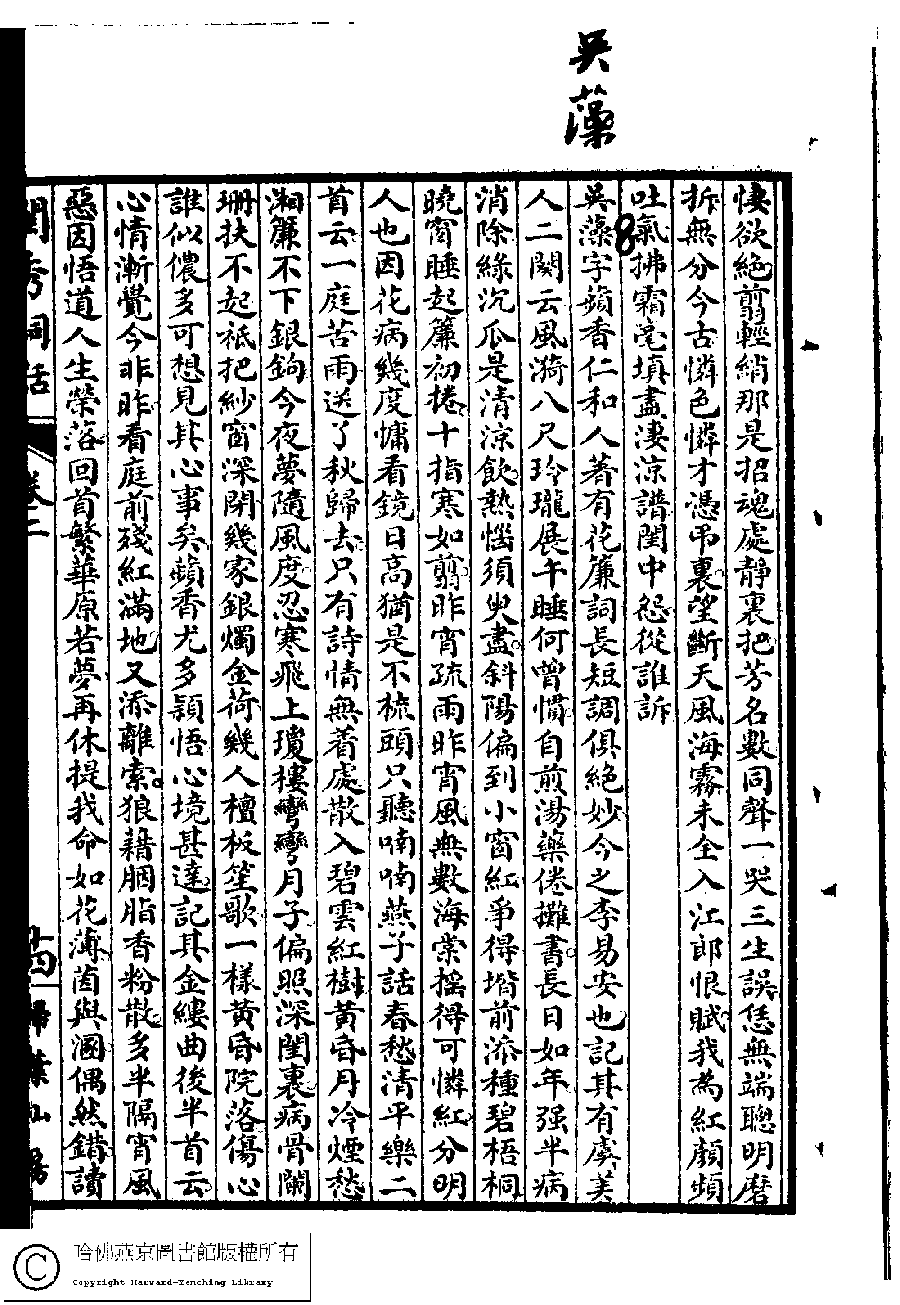 吳藻
悽欲絕翦輕綃那是招魂處靜裏把芳名數同聲一哭三生誤恁無端聰明磨
折無分今古憐色憐才憑弔裏望斷天風海霧未全入江郎恨賦我為紅顏頻
吐氣拂霜毫填盡淒涼譜閨中怨從誰訴
8
吳藻字蘋香仁和人著有花簾詞長短調俱絕妙今之李易安也記其有虞美
人二闋云風漪八尺玲瓏展午睡何曾慣自煎湯藥倦攤書長日如年强半病
消除綠沉瓜是清涼飲熱惱須臾盡斜陽偏到小窗紅爭得堦前添種碧梧桐
曉窗睡起簾初捲十指寒如翦昨宵疏雨昨宵風無數海棠摇得可憐紅分明
人也因花病幾度慵看鏡日高猶是不梳頭只聽喃喃燕子話春愁清平樂二
首云一庭苦雨送了秋歸去只有詩情無著處散入碧雲紅樹黃昏月冷煙愁
湘簾不下銀鉤今夜夢隨風度忍寒飛上瓊樓彎彎月子偏照深閨裏病骨闌
珊扶不起祗把紗窗深閉幾家銀燭金荷幾人檀板笙歌一樣黃昏院落傷心
誰似儂多可想見其心事矣蘋香尤多穎悟心境甚達記其金縷曲後半首云
心情漸覺今非昨看庭前殘紅滿地又添離索狼藉胭脂香粉散多半隔宵風
惡因悟道人生榮落回首繁華原若夢再休提我命如花薄茵與溷偶然錯讀
閨秀詞話
卷二
十四
掃葉山房
哈佛燕京圖書館版權所有
© Copyright Harvard-Yenching Library